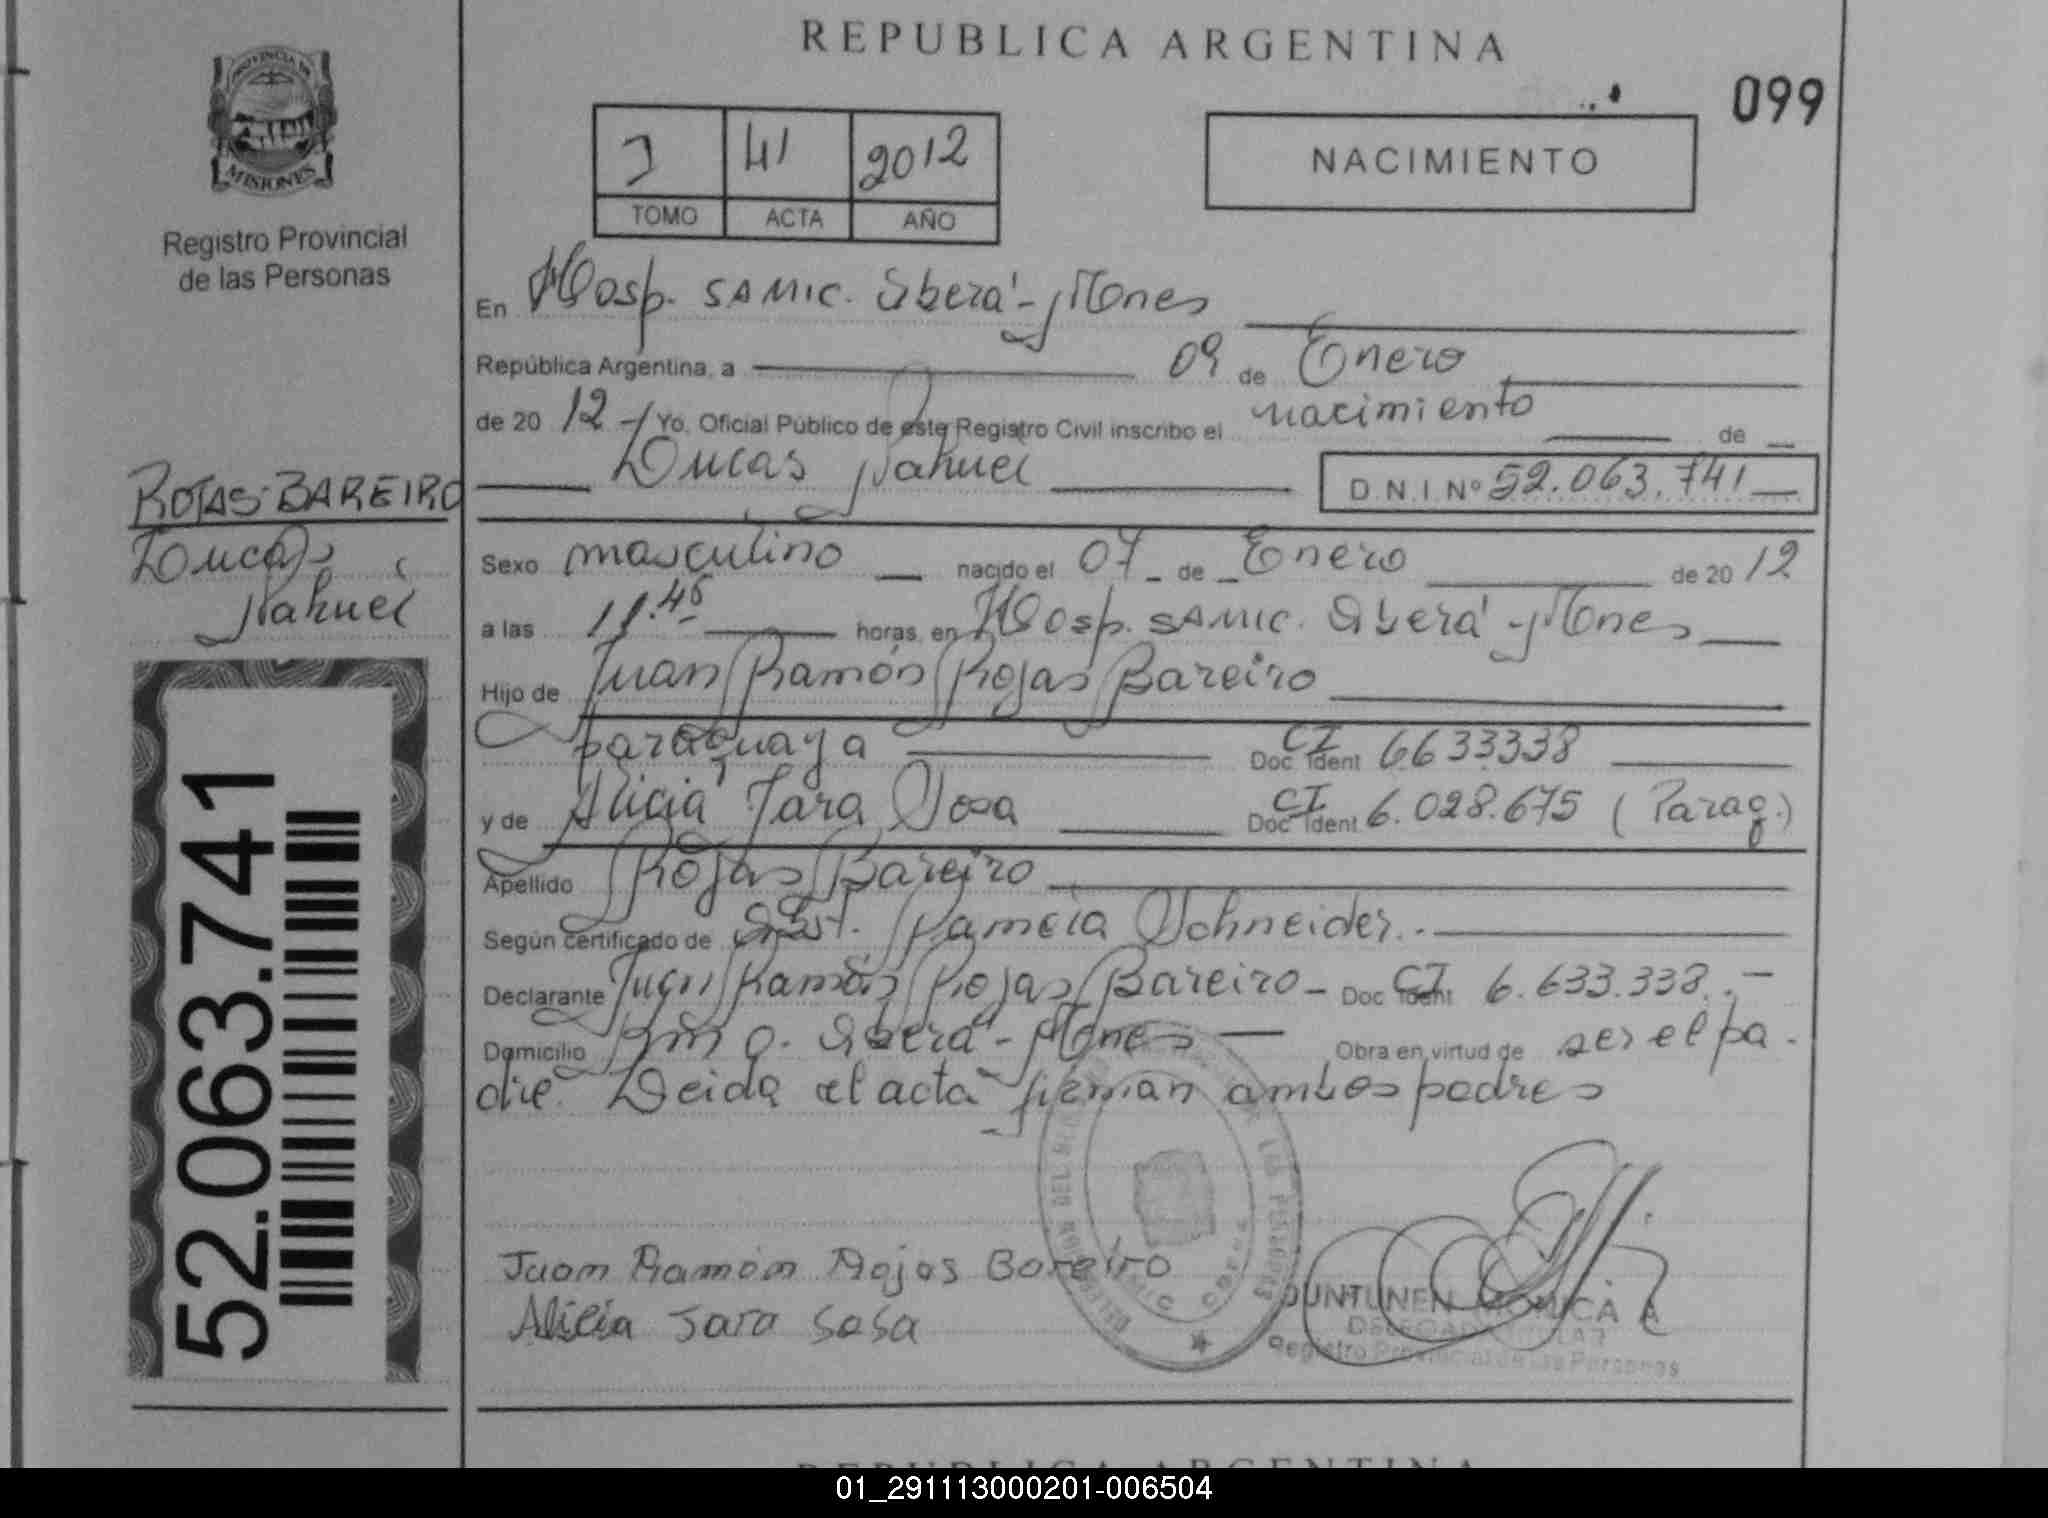 REPUBLICA ARGENTINA
099
PROVINCIA DE
MISIONES
Registro Provincial
de las Personas
I 41 2012
TOMO ACTA AÑO
NACIMIENTO
En Hosp. SAMIC. Oberá - Mnes
República Argentina, a 09 de Enero
de 20 12 Yo, Oficial Público de este Registro Civil inscribo el nacimiento de
Lucas Nahuel D.N.I Nº 52.063.741
ROJAS BAREIRO
Lucas
Nahuel
Sexo masculino nacido el 07 de Enero de 20 12
a las 11.45 horas, en Hosp. SAMIC. Oberá - Mnes
Hijo de Juan Ramón Rojas Bareiro
paraguaya Doc Ident CI 6633338
y de Alicia Jara Sosa Doc Ident CI 6.028.675 (Parag.)
Apellido Rojas Bareiro
Según certificado de Obst. Pamela Schneider.-
Declarante Juan Ramón Rojas Bareiro - Doc Ident CI 6.633.338.-
Domicilio Oberá - Mnes Obra en virtud de ser el pa-
dre. Leida el acta firman ambos padres
Juan Ramón Rojas Bareiro
Alicia Jara Sosa
MONICA A
Registro Provincial de las Personas
52.063.741
REPUBLICA ARGENTINA
01_291113000201-006504